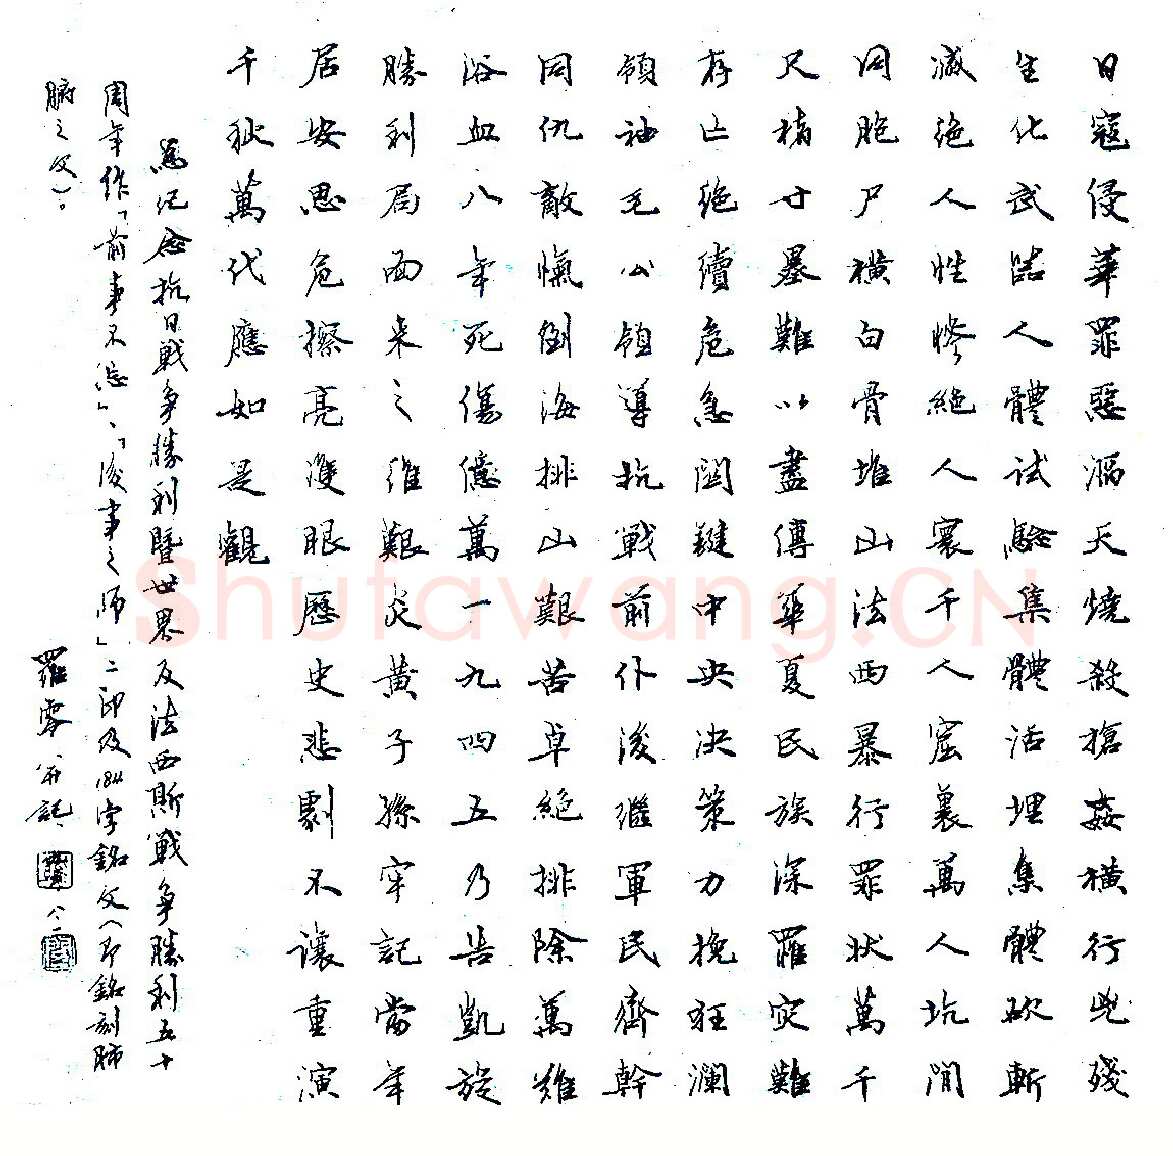 日寇侵華罪惡滔天燒殺搶姦橫行兇殘
生化武器人體試驗集體活埋集體砍斬
滅絕人性慘絕人寰千人窟裏萬人坑間
同胞尸橫白骨堆山法西暴行罪狀萬千
尺楮寸墨難以盡傳華夏民族深罹災難
存亡絕續危急關鍵中央決策力挽狂瀾
領袖毛公領導抗戰前仆後繼軍民齊幹
同仇敵愾倒海排山艱苦卓絕排除萬難
浴血八年死傷億萬一九四五乃告凱旋
勝利局面來之維艱炎黃子孫牢記當年
居安思危擦亮雙眼歷史悲劇不讓重演
千秋萬代應如是觀
為紀念抗日戰爭勝利暨世界反法西斯戰爭勝利五十
周年作「前事不忘」、「後事之師」二印及184字銘文（即銘刻肺
腑之文）。
羅雪 并記
Shufawang.CN